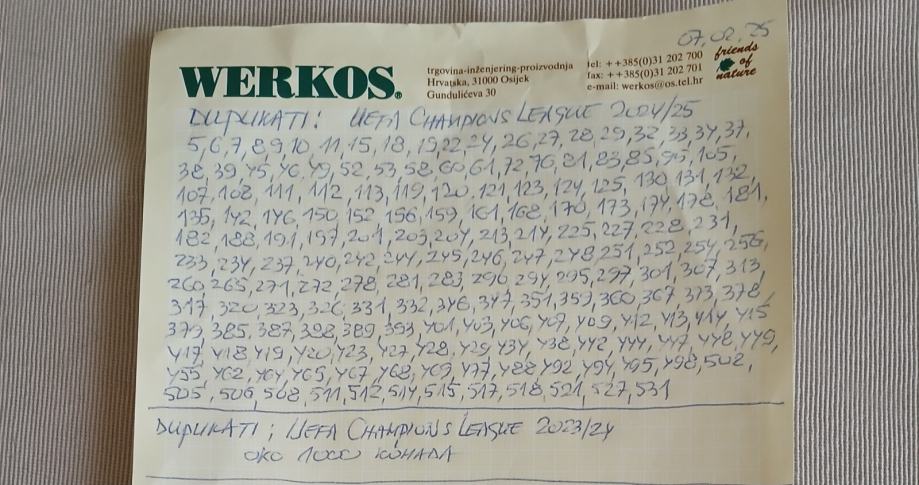 07.02.25
WERKOS®
trgovina-inženjering-proizvodnja
Hrvatska, 31000 Osijek
Gundulićeva 30
tel: ++385(0)31 202 700
fax: ++385(0)31 202 701
e-mail: werkos@os.tel.hr
friends
of
nature
DUPLIKATI: UEFA CHAMPIONS LEAGUE 2024/25
5,6,7,8,9,10,11,15,18,19,22,24,26,27,28,29,32,33,34,37,
38,39,45,46,49,52,53,58,60,61,72,76,81,83,85,95,105,
107,108,111,112,113,119,120,121,123,124,125,130,131,132,
135,142,146,150,152,156,159,161,168,170,173,174,178,181,
182,188,191,197,201,203,204,213,214,225,227,228,231,
233,234,237,240,242,244,245,246,247,248,251,252,254,256,
260,265,271,272,278,281,283,290,294,295,297,301,307,313,
317,320,323,326,331,332,346,347,351,359,360,367,373,378,
379,385,387,388,389,393,401,403,406,407,409,412,413,414,415
417,418,419,420,423,427,428,429,434,438,442,444,447,448,449,
455,462,464,465,467,468,469,477,488,492,494,495,498,502,
505,506,508,511,512,514,515,517,518,521,527,531
DUPLIKATI; UEFA CHAMPIONS LEAGUE 2023/24
OKO 1000 KOMADA